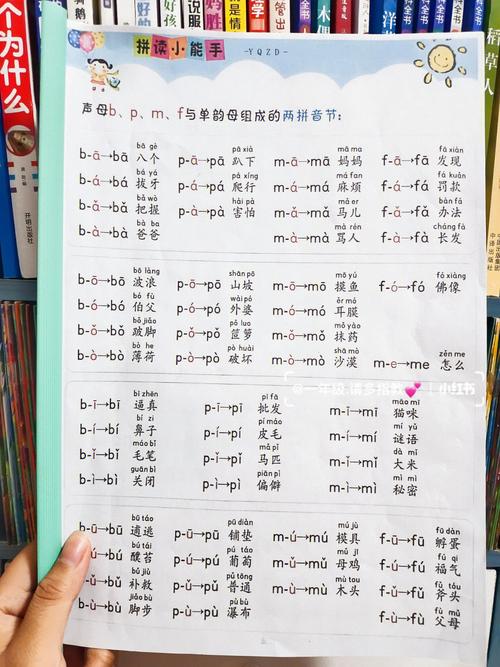 拼读小能手
-YQZD-
声母b、p、m、f与单韵母组成的两拼音节:
bā gè pā xià mā ma fā xiàn
b-ā→bā 八个 p-ā→pā 趴下 m-ā→mā 妈妈 f-ā→fā 发现
bá yá pá xíng má fan fá kuǎn
b-á→bá 拔牙 p-á→pá 爬行 m-á→má 麻烦 f-á→fá 罚款
bǎ wò hài pà mǎ er bàn fǎ
b-ǎ→bǎ 把握 p-à→pà 害怕 m-ǎ→mǎ 马儿 f-ǎ→fǎ 办法
bà ba mà rén cháng fà
b-à→bà 爸爸 m-à→mà 骂人 f-à→fà 长发
bō làng shān pō mō yú fó xiàng
b-ō→bō 波浪 p-ō→pō 山坡 m-ō→mō 摸鱼 f-ó→fó 佛像
bó fù wài pó ěr mó
b-ó→bó 伯父 p-ó→pó 外婆 m-ó→mó 耳膜
bǒ jiǎo pǒ luo mǒ yào
b-ǒ→bǒ 跛脚 p-ǒ→pǒ 笸箩 m-ǒ→mǒ 抹药
bò he pò huài shā mò zěn me
b-ò→bò 薄荷 p-ò→pò 破坏 m-ò→mò 沙漠 m-e→me 怎么
@一年级.请多指教💕 小红书
bī zhēn pī fā māo mī
b-ī→bī 逼真 p-ī→pī 批发 m-ī→mī 猫咪
bí zi pí máo mí yǔ
b-í→bí 鼻子 p-í→pí 皮毛 m-í→mí 谜语
máo bǐ mǎ pǐ dà mǐ
b-ǐ→bǐ 毛笔 p-ǐ→pǐ 马匹 m-ǐ→mǐ 大米
guān bì piān pì mì mì
b-ì→bì 关闭 p-ì→pì 偏僻 m-ì→mì 秘密
bū táo pū diàn mú jù fū dàn
b-ū→bū 逋逃 p-ū→pū 铺垫 m-ú→mú 模具 f-ū→fū 孵蛋
bú tái pú táo mǔ jī fú qì
-ú→bú 醭苔 p-ú→pú 葡萄 m-ǔ→mǔ 母鸡 f-ú→fú 福气
bǔ jiù pǔ tōng mù tou fǔ tóu
-ǔ→bǔ 补救 p-ǔ→pǔ 普通 m-ù→mù 木头 f-ǔ→fǔ 斧头
jiǎo bù pù bù fù mǔ
-ù→bù 脚步 p-ù→pù 瀑布 f-ù→fù 父母
个为什么
开明出版社
稻草人